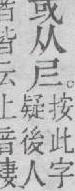 或从
按此字
疑後人
皆云上音